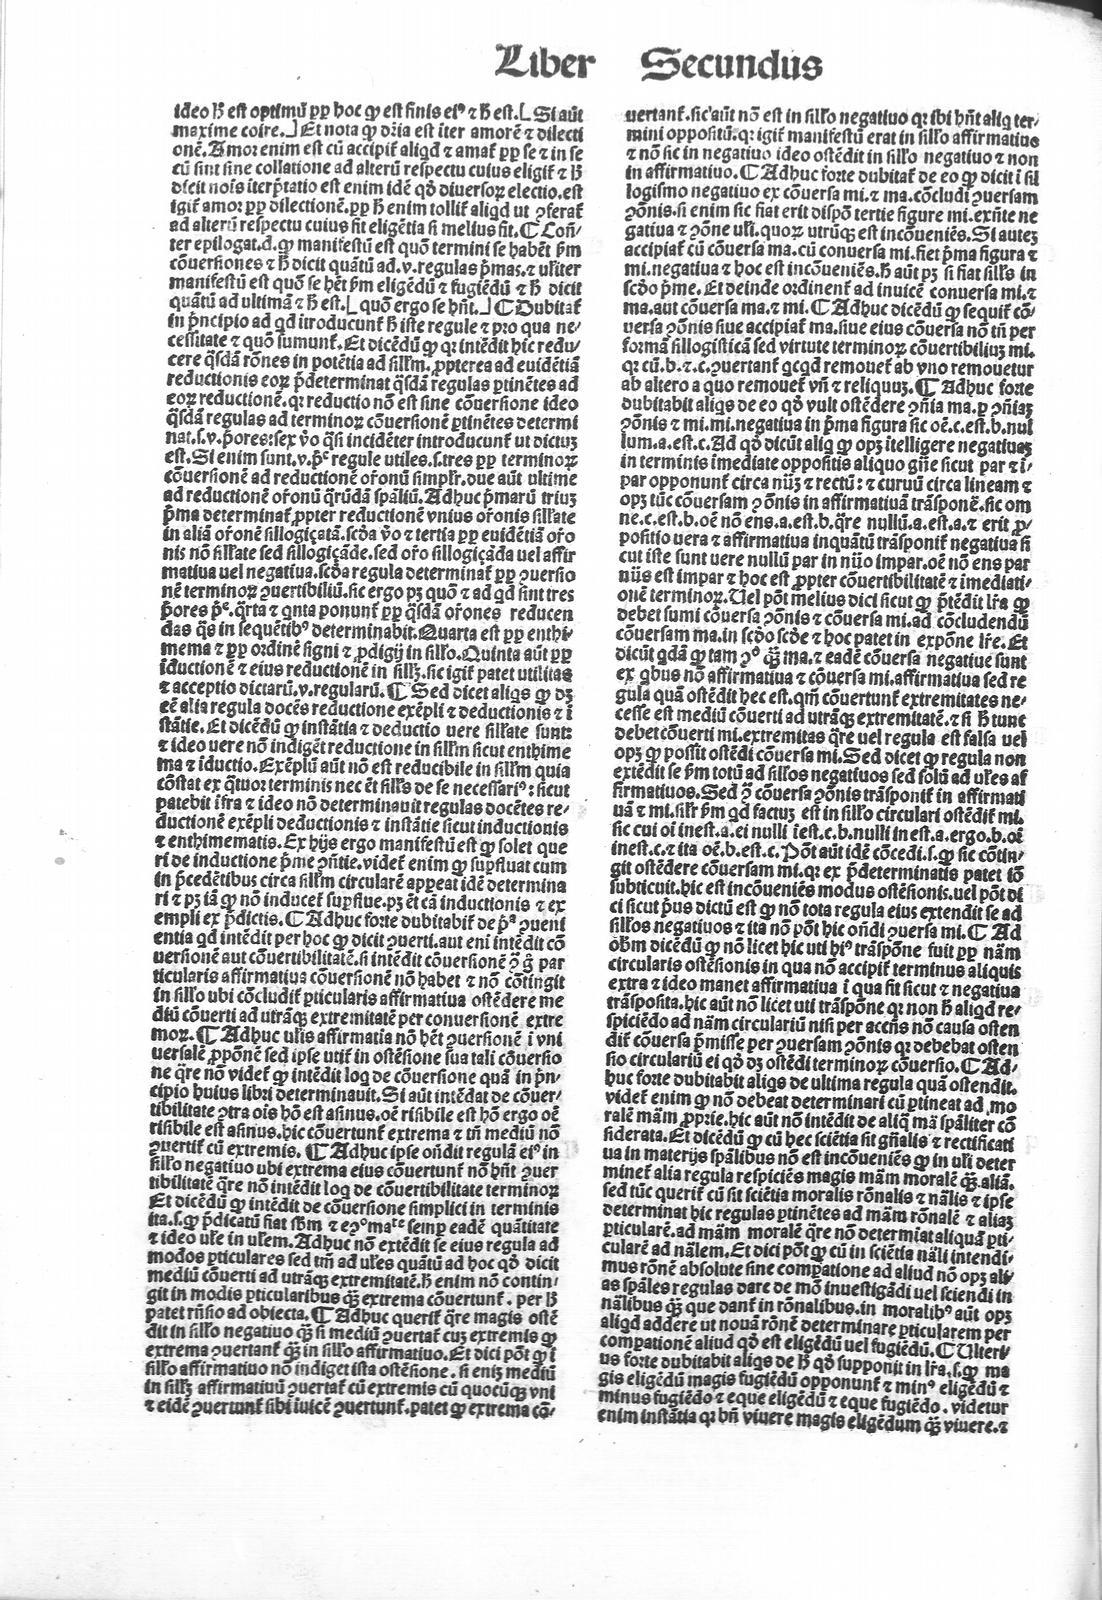 Liber Secundus
ideo ħ est optimū ꝓp hoc ꝙ est finis eiꝰ ⁊ ħ est.⌊Si aūt
maxime coire.⌋Et nota ꝙ dr̄ia est iter amorē ⁊ dilecti
onē.Amor enim est cū accipit̄ aliqd ⁊ amat̄ ꝓp se ⁊ in se
cū sint sine collatione ad alterū respectu cuius eligit̄ ⁊ ħ
dicit nois̄ iterp̄tatio est enim idē qd̄ diuersoꝝ electio.est
igit̄ amor ꝓp dilectionē.ꝓp ħ enim tollit̄ aliqd ut ꝯferat̄
ad alterū respectu cuius fit eligētia si melius sit.¶Con̄/
ter epilogat.d.ꝙ manifestū est quō termini se habēt ẜm
cōuersiones ⁊ ħ dicit quātū ad.v.regulas p̄mas.⁊ ulīter
manifestū est quō se hēt p̄m eligēdū ⁊ fugiēdū ⁊ ħ dicit
quātū ad ultimā ⁊ ħ est.⌊quō ergo se hn̄t.⌋¶Dubitat̄
in p̄ncipio ad qd itroducunt̄ ħ iste regule ⁊ pro qua ne/
cessitate ⁊ quō sumunt̄.Et dicēdū ꝙ qꝛ intēdit hic redu/
cere q̄sdā rōnes in potētia ad sill'm.ꝓpterea ad euidētiā
reductionis eoꝝ p̄determinat q̄sdā regulas ꝑtinētes ad
eoꝝ reductionē.qꝛ reductio nō est sine cōuersione ideo
q̄sdā regulas ad terminoꝝ cōuersionē ꝑtinētes determi
nat.s.v.p̄ores:sex v̄o q̄si incidēter introducunt̄ ut dictuꝫ
est.Si enim sunt.v.p̄ᵉ regule utiles.s.tres ꝓp terminoꝝ
cōuersionē ad reductionē or̄onū simplr̄.due aūt ultime
ad reductionē or̄onū q̄rūdā spāliū.Adhuc p̄marū triuꝫ
p̄ma determinat̄ ꝓpter reductionē vnius or̄onis sill'ate
in aliā or̄onē sillogiçatā.scd̄a v̄o ⁊ tertia ꝓp euidētiā or̄o
nis nō sill'ate sed sillogiçāde.sed or̄o sillogiçāda uel affir
matiua uel negatiua.scd̄a regula determinat̄ ꝓp ꝯuersio
nē terminoꝝ ꝯuertibiliū.sic ergo pꝫ quō ⁊ ad qd sint tres
p̄ores p̄ᵉ.q̄rta ⁊ qnta ponunt̄ ꝓp q̄sdā or̄ones reducen
das q̄s in sequētibꝰ determinabit.Quarta est ꝓp enthi/
mema ⁊ ꝓp ordinē signi ⁊ ꝓdigij in sill'o.Quinta aūt ꝓp
iductionē ⁊ eius reductionē in sill'ꝫ.sic igit̄ patet utilitas
⁊ acceptio dictarū.v.regularū.¶Sed dicet aliqs ꝙ dꝫ
eē alia regula docēs reductione exēpli ⁊ deductionis ⁊ i
stātie.Et dicēdū ꝙ instātia ⁊ deductio uere sill'ate sunt:
⁊ ideo uere nō indigēt reductione in sill'm sicut enthime
ma ⁊ iductio.Exēplū aūt nō est reducibile in sill'm quia
cōstat ex q̄tuor terminis nec ēt sill's de se necessariꝰ:sicut
patebit ifra ⁊ ideo nō determinauit regulas docētes re/
ductionē exēpli deductionis ⁊ instātie sicut inductionis
⁊ enthimematis.Ex hijs ergo manifestū est ꝙ solet que
ri de inductione p̄me ꝯn̄tie.videt̄ enim ꝙ suꝑfluat cum
in p̄cedētibus circa sill'm circularē appeat idē determina
ri ⁊ pꝫ iā ꝙ nō inducet̄ suꝑflue.pꝫ ēt cā inductionis ⁊ ex
empli ex p̄dictis.¶Adhuc forte dubitabit̄ de p̄ᵃ ꝯueni
entia qd intēdit per hoc ꝙ dicit ꝯuerti.aut eni intēdit cō
uersionē aut cōuertibilitatē.si intēdit cōuersionē ꝯ̄ ḡ par
ticularis affirmatiua cōuersionē nō habet ⁊ nō cōtingit
in sill'o ubi cōcludit̄ ꝑticularis affirmatiua ostēdere me
diū cōuerti ad utrāqꝫ extremitatē per conuersionē extre
moꝝ.¶Adhuc ul'is affirmatia nō hēt ꝯuersionē i vni
uersalē ꝓponē sed ipse utit̄ in ostēsione sua tali cōuersio
ne q̄re nō videt̄ ꝙ intēdit loq de cōuersione quā in p̄n/
cipio huius libri determinauit.Si aūt intēdat de cōuer/
tibilitate ꝯtra ois hō est asinus.oē risibile est hō ergo oē
risibile est asinus.hic cōuertunt̄ extrema ⁊ tn̄ mediū nō
ꝯuertit̄ cū extremis.¶Adhuc ipse on̄dit regulā eiꝰ in
sill'o negatiuo ubi extrema eius cōuertunt̄ nō hn̄t ꝯuer
tibilitatē q̄re nō intēdit loq de cōuertibilitate terminoꝝ
Et dicēdū ꝙ intēdit de cōuersione simplici in terminis
ita.s.ꝙ p̄dicatū fiat sb̄m ⁊ eꝯꝰ maᵗᵉ semꝑ eadē quātitate
⁊ ideo ul'e in ul'em.Adhuc nō extēdit se eius regula ad
modos ꝑticulares sed tm̄ ad ul'es quātū ad hoc qd̄ dicit
mediū cōuerti ad utrāqꝫ extremitatē.ħ enim nō contin/
git in modis ꝑticularibus q̄ꝫ extrema cōuertunt̄.per ħ
patet rn̄sio ad obiecta.¶Adhuc querit̄ q̄re magis ostē
dit in sill'o negatiuo q̄ꝫ si mediū ꝯuertat̄ cuꝫ extremis ꝙ
extrema ꝯuertant̄ q̄ꝫ in sill'o affirmatiuo.Et dici pōt ꝙ i
sill'o affirmatiuo nō indiget ista ostēsione.si eniꝫ mediū
in sill'ꝫ affirmatiuū ꝯuertat̄ cū extremis cū quocūqꝫ vni
⁊ eidē ꝯuertunt̄ sibi iuicē ꝯuertunt̄.patet ꝙ extrema cō/
uertant̄.sic'aūt nō est in sill'o negatiuo qꝛ ibi hn̄t aliq ter/
mini oppositū.qꝛ igit̄ manifestū erat in sill'o affirmatiuo
⁊ nō sic in negatiuo ideo ostēdit in sill'o negatiuo ⁊ non
in affirmatiuo.¶Adhuc forte dubitat̄ de eo ꝙ dicit i sil
logismo negatiuo ex cōuersa mi.⁊ ma.cōcludi ꝯuersam
ꝯōnis.si enim sic fiat erit dispō tertie figure mi.exn̄te ne
gatiua ⁊ ꝯōne uli.quoꝝ utrūqꝫ est incōueniēs.Si auteꝫ
accipiat̄ cū cōuersa ma.cū conuersa mi.fiet p̄ma figura ⁊
mi.negatiua ⁊ hoc est incōueniēs.ħ aūt pꝫ si fiat sill's in
scd̄o p̄me.Et deinde ordinent̄ ad inuicē conuersa mi.⁊
ma.aut cōuersa ma.⁊ mi.¶Adhuc dicēdū ꝙ sequit̄ cō/
uersa ꝯōnis siue accipiat̄ ma.siue eius cōuersa nō tn̄ per
formā sillogisticā sed virtute terminoꝝ cōuertibiliuꝫ mi.
qꝛ cū.b.⁊.c.ꝯuertant̄ qcqd remouet̄ ab vno remouetur
ab altero a quo remouet̄ vn̄ ⁊ reliquuꝫ.¶Adhuc forte
dubitabit aliqs de eo qd̄ vult ostēdere ꝯn̄ia ma.ꝑ ꝯn̄iaꝫ
ꝯōnis ⁊ mi.mi.negatiua in p̄ma figura sic oē.c.est.b.nul
lum.a.est.c.Ad qd̄ dicūt aliq ꝙ opꝫ itelligere negatiuaꝫ
in terminis imediate oppositis aliquo gn̄e sicut par ⁊ i/
par opponunt̄ circa nūꝫ ⁊ rectū:⁊ curuū circa lineam ⁊
opꝫ tūc cōuersam ꝯōnis in affirmatiuā trāsponē.sic om
ne.c.est.b.oē nō ens.a.est.b.q̄re nullū.a.est.a.⁊ erit ꝓ/
positio uera ⁊ affirmatiua inquātū trāsponit̄ negatiua si
cut iste sunt uere nullū par in nūo impar.oē nō ens par
nūs est impar ⁊ hoc est ꝓpter cōuertibilitatē ⁊ imediati/
onē terminoꝝ.Uel pōt melius dici sicut ꝙ p̄tēdit l'ra ꝙ
debet sumi cōuersa ꝯōnis ⁊ cōuersa mi.ad cōcludendū
cōuersam ma.in scd̄o scd̄e ⁊ hoc patet in expōne l're.Et
dicūt qdā ꝙ tam ꝯᵒ q̄ꝫ ma.⁊ eadē cōuersa negatiue sunt
ex qbus nō affirmatiua ⁊ cōuersa mi.affirmatiua sed re
gula quā ostēdit hec est.qm̄ cōuertunt̄ extremitates ne/
cesse est mediū cōuerti ad utrāqꝫ extremitatē.⁊ si ħ tunc
debet cōuerti mi.extremitas q̄re uel regula est falsa uel
opꝫ ꝙ possit ostēdi cōuersa mi.Sed dicet ꝙ regula non
extēdit se ẜm totū ad sill'os negatiuos sed solū ad ul'es af
firmatiuos.Sed ꝯ̄ cōuersa ꝯōnis trāsponit̄ in affirmati
uā ⁊ mi.silr̄ ẜm qd factuꝫ est in sill'o circulari ostēdit̄ mi.
sic cui oi inest.a.ei nulli iest.c.b.nulli inest.a.ergo.b.oī
inest.c.⁊ ita oē.b.est.c.Pōt aūt idē cōcedi.s.ꝙ sic cōtin/
git ostēdere cōuersam mi.qꝛ ex p̄determinatis patet iō
subticuit.hic est incōueniēs modus ostēsionis.uel pōt di
ci sicut p̄us dictū est ꝙ nō tota regula eius extendit se ad
sill'os negatiuos ⁊ ita nō pōt hic on̄di ꝯuersa mi.¶Ad
ob̄m dicēdū ꝙ nō licet hic uti hiꝰ trāspōne fuit ꝓp nām
circularis ostēsionis in qua nō accipit̄ terminus aliquis
extra ⁊ ideo manet affirmatiua i qua fit sicut ⁊ negatiua
trāsposita.hic aūt nō licet uti trāspōne qꝛ non ħ aliqd re/
spiciēdo ad nām circulariū nisi per accn̄s nō causa osten
dit̄ cōuersa p̄misse per ꝯuersam ꝯōnis qꝛ debebat osten
sio circulariū ei qd̄ dꝫ ostēdi terminoꝝ cōuersio.¶Ad/
huc forte dubitabit aliqs de ultima regula quā ostendit.
videt̄ enim ꝙ nō debeat determinari cū ꝑtineat ad mo
ralē mām ꝓprie.hic aūt nō intēdit de aliq̄ mā spāliter cō
siderata.Et dicēdū ꝙ cū hec sciētia sit gn̄alis ⁊ rectificati
ua in materijs spālibus nō est incōueniēs ꝙ in uli deter
minet̄ alia regula respiciēs magis mām moralē q̄ꝫ.aliā.
sed tūc querit̄ cū sit sciētia moralis rōnalis ⁊ nālis ⁊ ipse
determinat hic regulas ꝑtinētes ad mām rōnalē ⁊ alias
ꝑticularē.ad mām moralē q̄re nō determiat aliquā ꝑti/
cularē ad nālem.Et dici pōt ꝙ cū in sciētia nāli intendi/
mus rōnē absolute sine comꝑatione ad aliud nō opꝫ ali/
as spāles regulas dare de mō inuestigādi uel sciendi in
nālibus q̄ꝫ que dant̄ in rōnalibus.in moralibꝰ aūt opꝫ
aliqd addere ut nouā rōnē determinare ꝑticularem per
comꝑationē aliud qd̄ est eligēdū uel fugiēdū.¶Ulteri/
us forte dubitabit aliqs de ħ qd̄ supponit in l'ra.s.ꝙ ma
gis eligēdū magis fugiēdū opponunt̄ ⁊ minꝰ eligēdū ⁊
minus fugiēdo ⁊ eque eligēdū ⁊ eque fugiēdo.videtur
enim instātia qꝛ bn̄ viuere magis eligēdum q̄ꝫ viuere.⁊